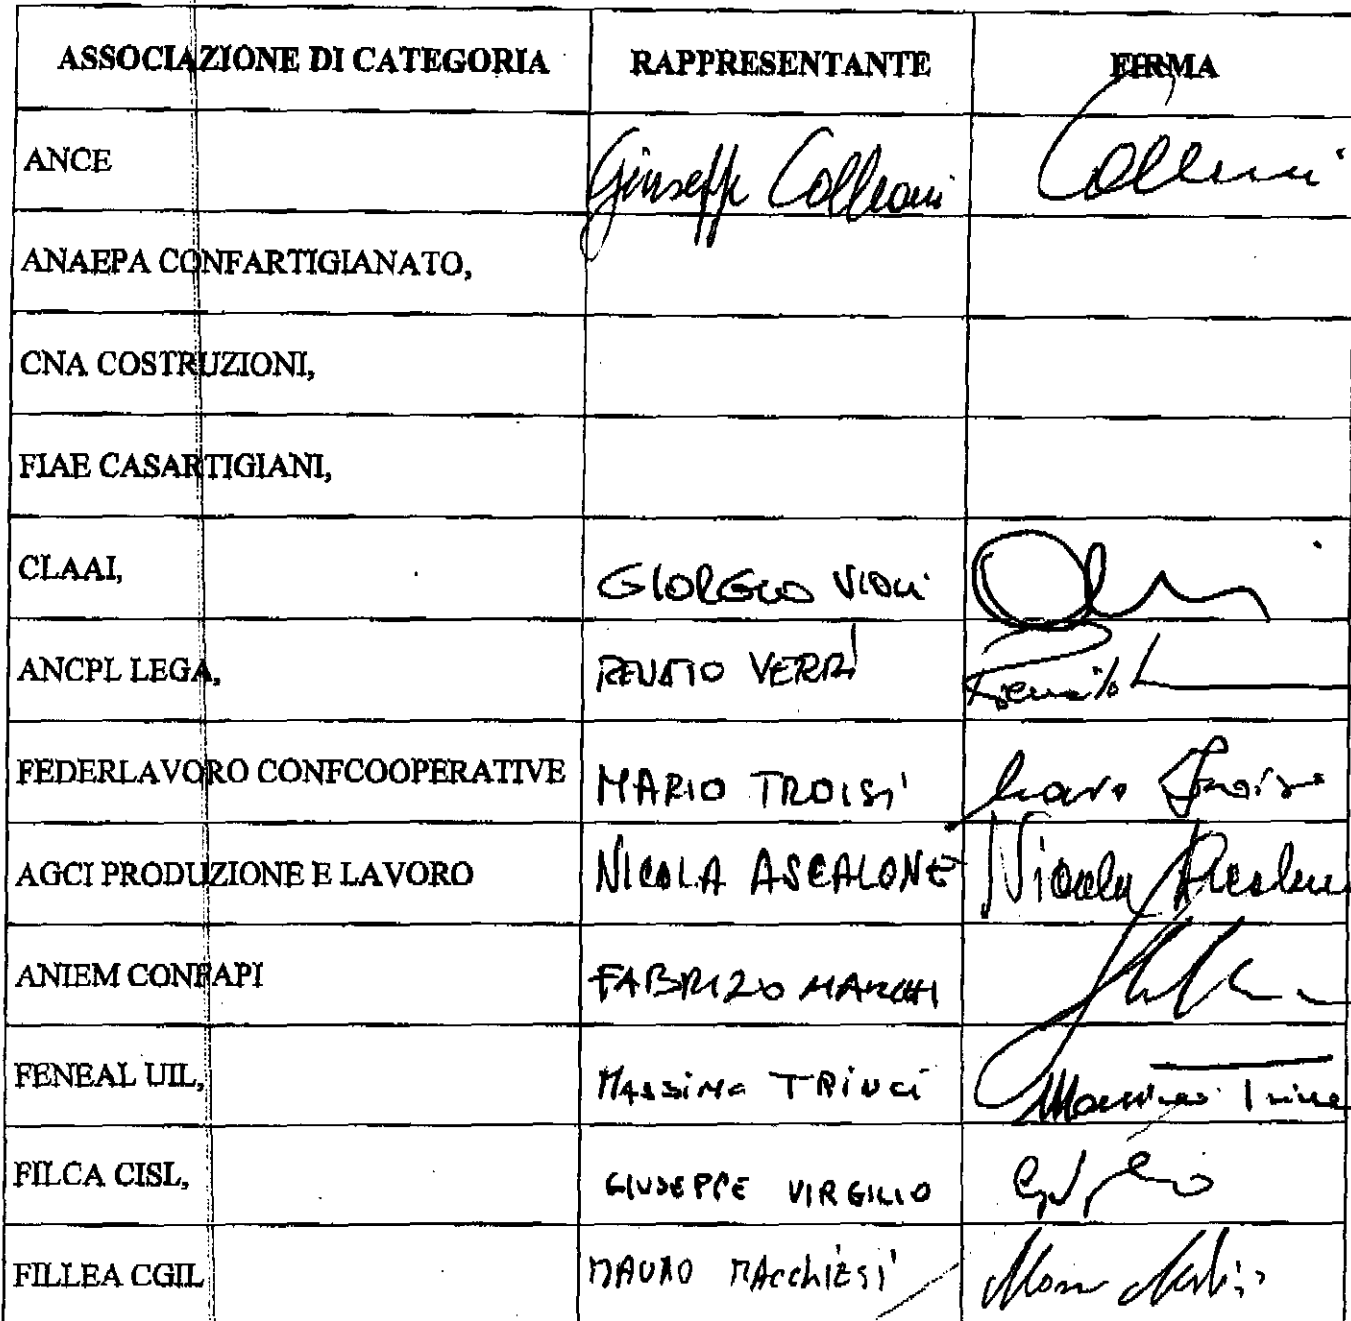 ASSOCIAZIONE DI CATEGORIA RAPPRESENTANTE FIRMA
ANCE Giuseppe Colleoni Colleoni
ANAEPA CONFARTIGIANATO,
CNA COSTRUZIONI,
FIAE CASARTIGIANI,
CLAAI, GIORGIO
ANCPL LEGA, RENATO VERRI
FEDERLAVORO CONFCOOPERATIVE MARIO TROISI Mario Troisi
AGCI PRODUZIONE E LAVORO NICOLA ASCALONE Nicola Ascalone
ANIEM CONFAPI FABRIZO MARCHI
FENEAL UIL, MASSIMO TRINCI Massimo Trinci
FILCA CISL, GIUSEPPE VIRGILIO
FILLEA CGIL MAURO MACCHIESI